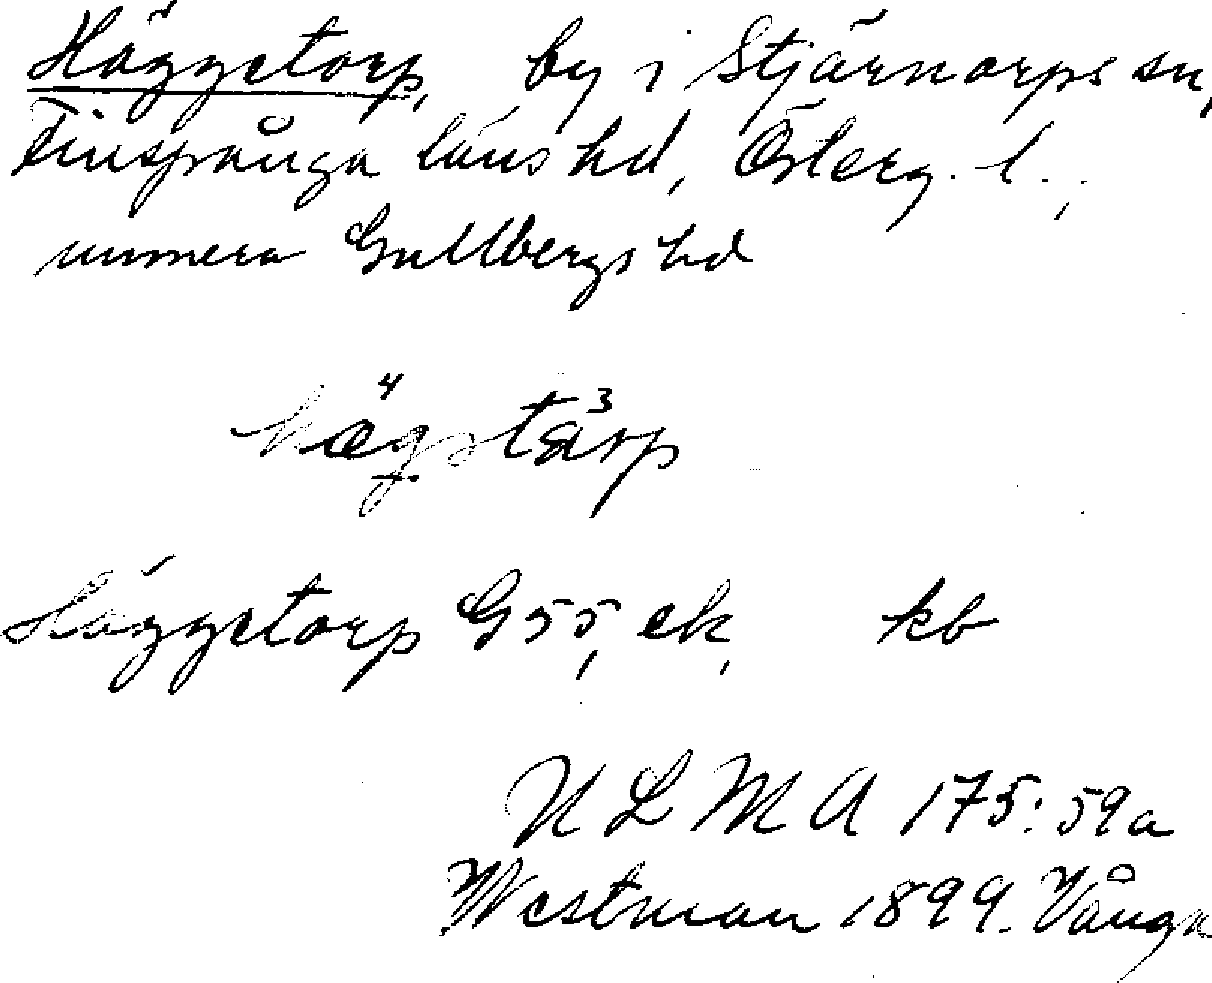 Häggetorp, by i Stjärnorps sn,
Finspånga läns hd, Österg. l.,
numera Gullbergs hd
Häggetorp G 55, ek, kb
ULMA 175:59a
Westman 1899. Vånga